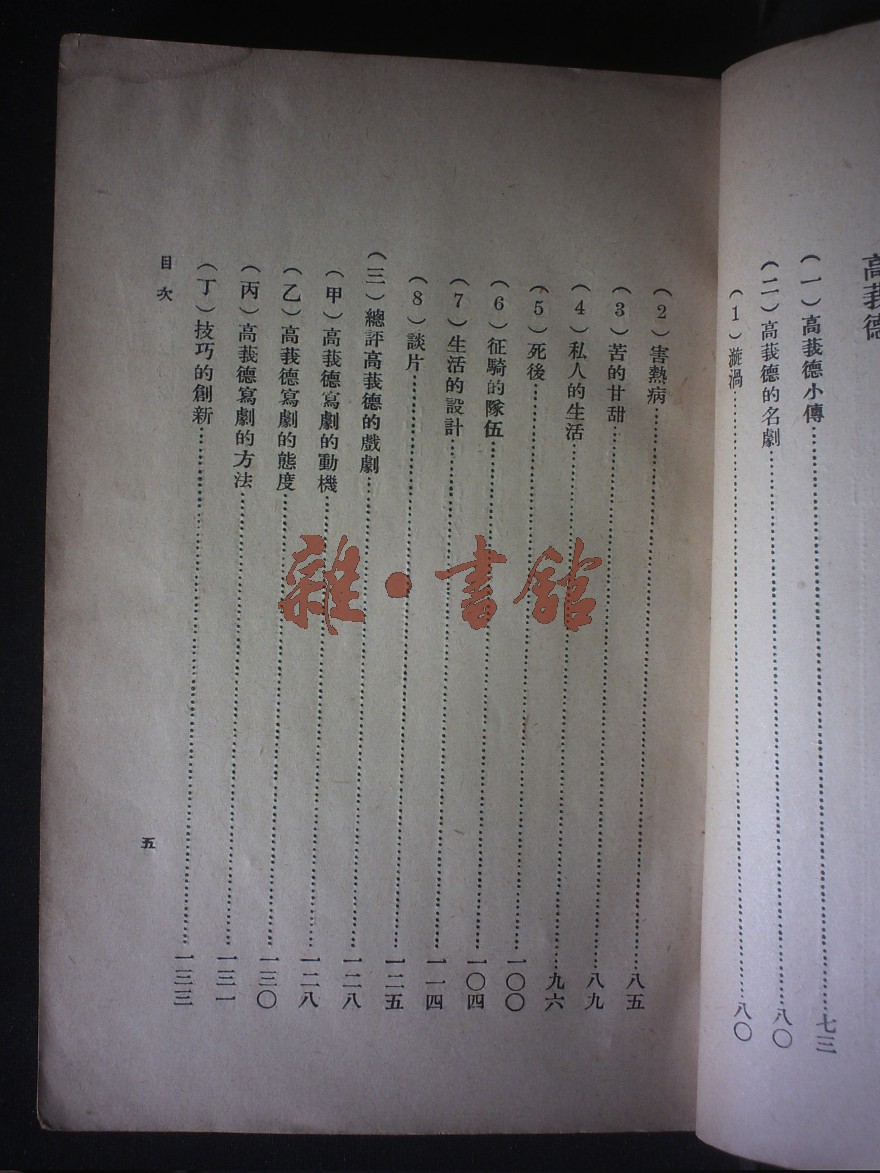 高莪德
（一）高莪德小傳……七三
（二）高莪德的名劇……八〇
（1）漩渦……八〇
（2）害熱病……八五
（3）苦的甘甜……八九
（4）私人的生活……九六
（5）死後……一〇〇
（6）征騎的隊伍……一〇四
（7）生活的設計……一一四
（8）談片……一二五
（三）總評高莪德的戲劇……一二八
（甲）高莪德寫劇的動機……一二八
（乙）高莪德寫劇的態度……一三〇
（丙）高莪德寫劇的方法……一三一
（丁）技巧的創新……一三三
目次
五
雜·書館